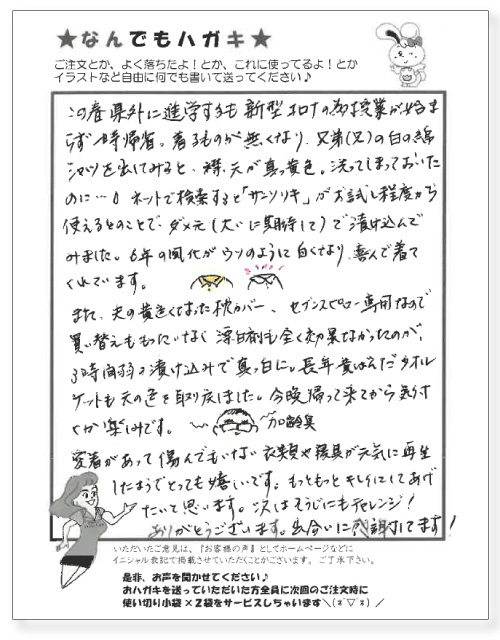 ★なんでもハガキ★
ご注文とか、よく落ちたよ！とか、これに使ってるよ！とか
イラストなど自由に何でも書いて送ってください♪
この春県外に進学するも新型コロナの為授業が始ま
らず一時帰省。着るものが無くなり、兄弟(兄)の白の綿
シャツを出してみると、襟元が真っ黄色。洗ってしまっておいた
のに…。ネットで検索すると「サンソリキ」がお試し程度から
使えるとのことで、ダメ元(大いに期待して)で漬け込んで
みました。6年の風化がウソのように白くなり、喜んで着て
くれています。
また、夫の黄色くなった枕カバー、セブンスピロー専用なので
買い替えももったいなく漂白剤も全く効果なかったのが、
3時間弱の漬け込みで真っ白に。長年黄ばんだタオル
ケットも元の色を取り戻しました。今晩帰って来てから気付
くか楽しみです。
加齢臭
愛着があって傷んでもいない衣類や寝具が元気に再生
したようでとっても嬉しいです。もっともっとキレイにしてあげ
たいと思います。次はそうじにもチャレンジ！
ありがとうございます。出会いに感謝してます！
いただいたご意見は、『お客様の声』としてホームページなどに
イニシャル表記で掲載させていただくことがございます。ご了承下さい。
是非、お声を聞かせてください♪
おハガキを送っていただいた方全員に次回のご注文時に
使い切り小袋×2袋をサービスしちゃいます＼(*´▽`*)／